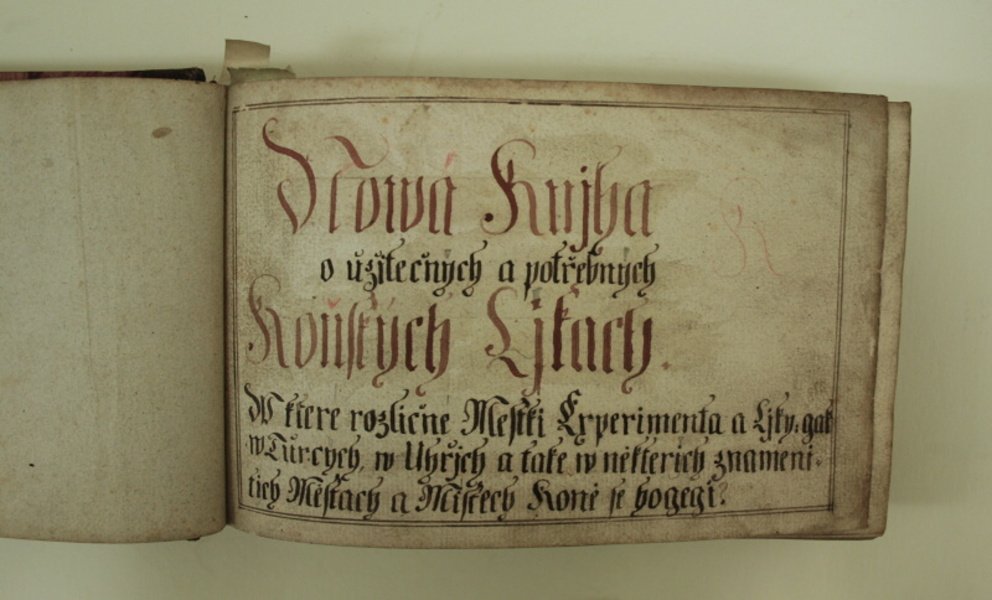 Nowá Knjha
o užitečných a potřebných
Koňských Ljkach.
W ktere rozličné Mestki Experimenta a Ljky, gak
w Turcych, w Uhřjch a take w některich znameni-
tich Městach a Mistech Koně se hogegi.